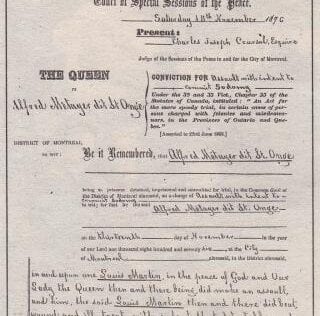 Court of Special Sessions of the Peace.
Saturday 18th November 1876
Present:
Charles Joseph Coursol, Esquire
Judge of the Sessions of the Peace in and for the City of Montreal.
THE QUEEN
vs
Alfred Métayer dit St. Onge
CONVICTION FOR Assault with intent to
commit Sodomy
Under the 32 and 33 Vict., Chapter 35 of the
Statutes of Canada, intituled: "An Act for
the more speedy trial, in certain cases of per-
sons charged with felonies and misdemea-
nors, in the Provinces of Ontario and Que-
bec."
[Assented to 22nd June 1869.]
DISTRICT OF MONTREAL
to wit:
Be it Remembered, that Alfred Métayer dit St. Onge
being a prisoner detained, imprisoned and committed for trial, in the Common Gaol of
the District of Montreal aforesaid, on a charge of Assault with intent to
commit Sodomy
to wit; for that he the said Alfred Métayer dit St. Onge
on the thirteenth day of November in the year
of our Lord one thousand eight hundred and seventy six at the City
of Montreal aforesaid, in the District aforesaid,
in and upon one Louis Martin, in the peace of God and Our
Lady the Queen then and there being, did make an assault
and him, the said Louis Martin then and there did beat,